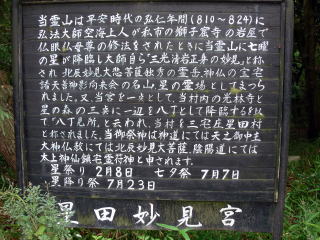 当霊山は平安時代の弘仁年間(810～824)に
弘法大師空海上人が私市の獅子窟寺の岩屋で
仏眼仏母尊の修法をされたときに当霊山に七曜
の星が降臨し大師自ら「三光清岩正身の妙見」と称
され北辰妙見大悲菩薩独秀の霊岳神仏の宝宅
諸天善神影向来会の名山、星の霊場としてまつら
れました。又、当宮を一矢として、当村内の光林寺と
星の森の三矢に一辺を八丁として降臨する以
て八丁見所、と云われ、当村を三宅庄星田村
と称されました。当御祭神は神道にては天之御中主
大神仏教にては北辰妙見大菩薩、陰陽道にては
太上神仙鎮宅霊符神と申されます。
星祭り 2月8日 七夕祭 7月7日
星降り祭 7月23日
星田妙見宮